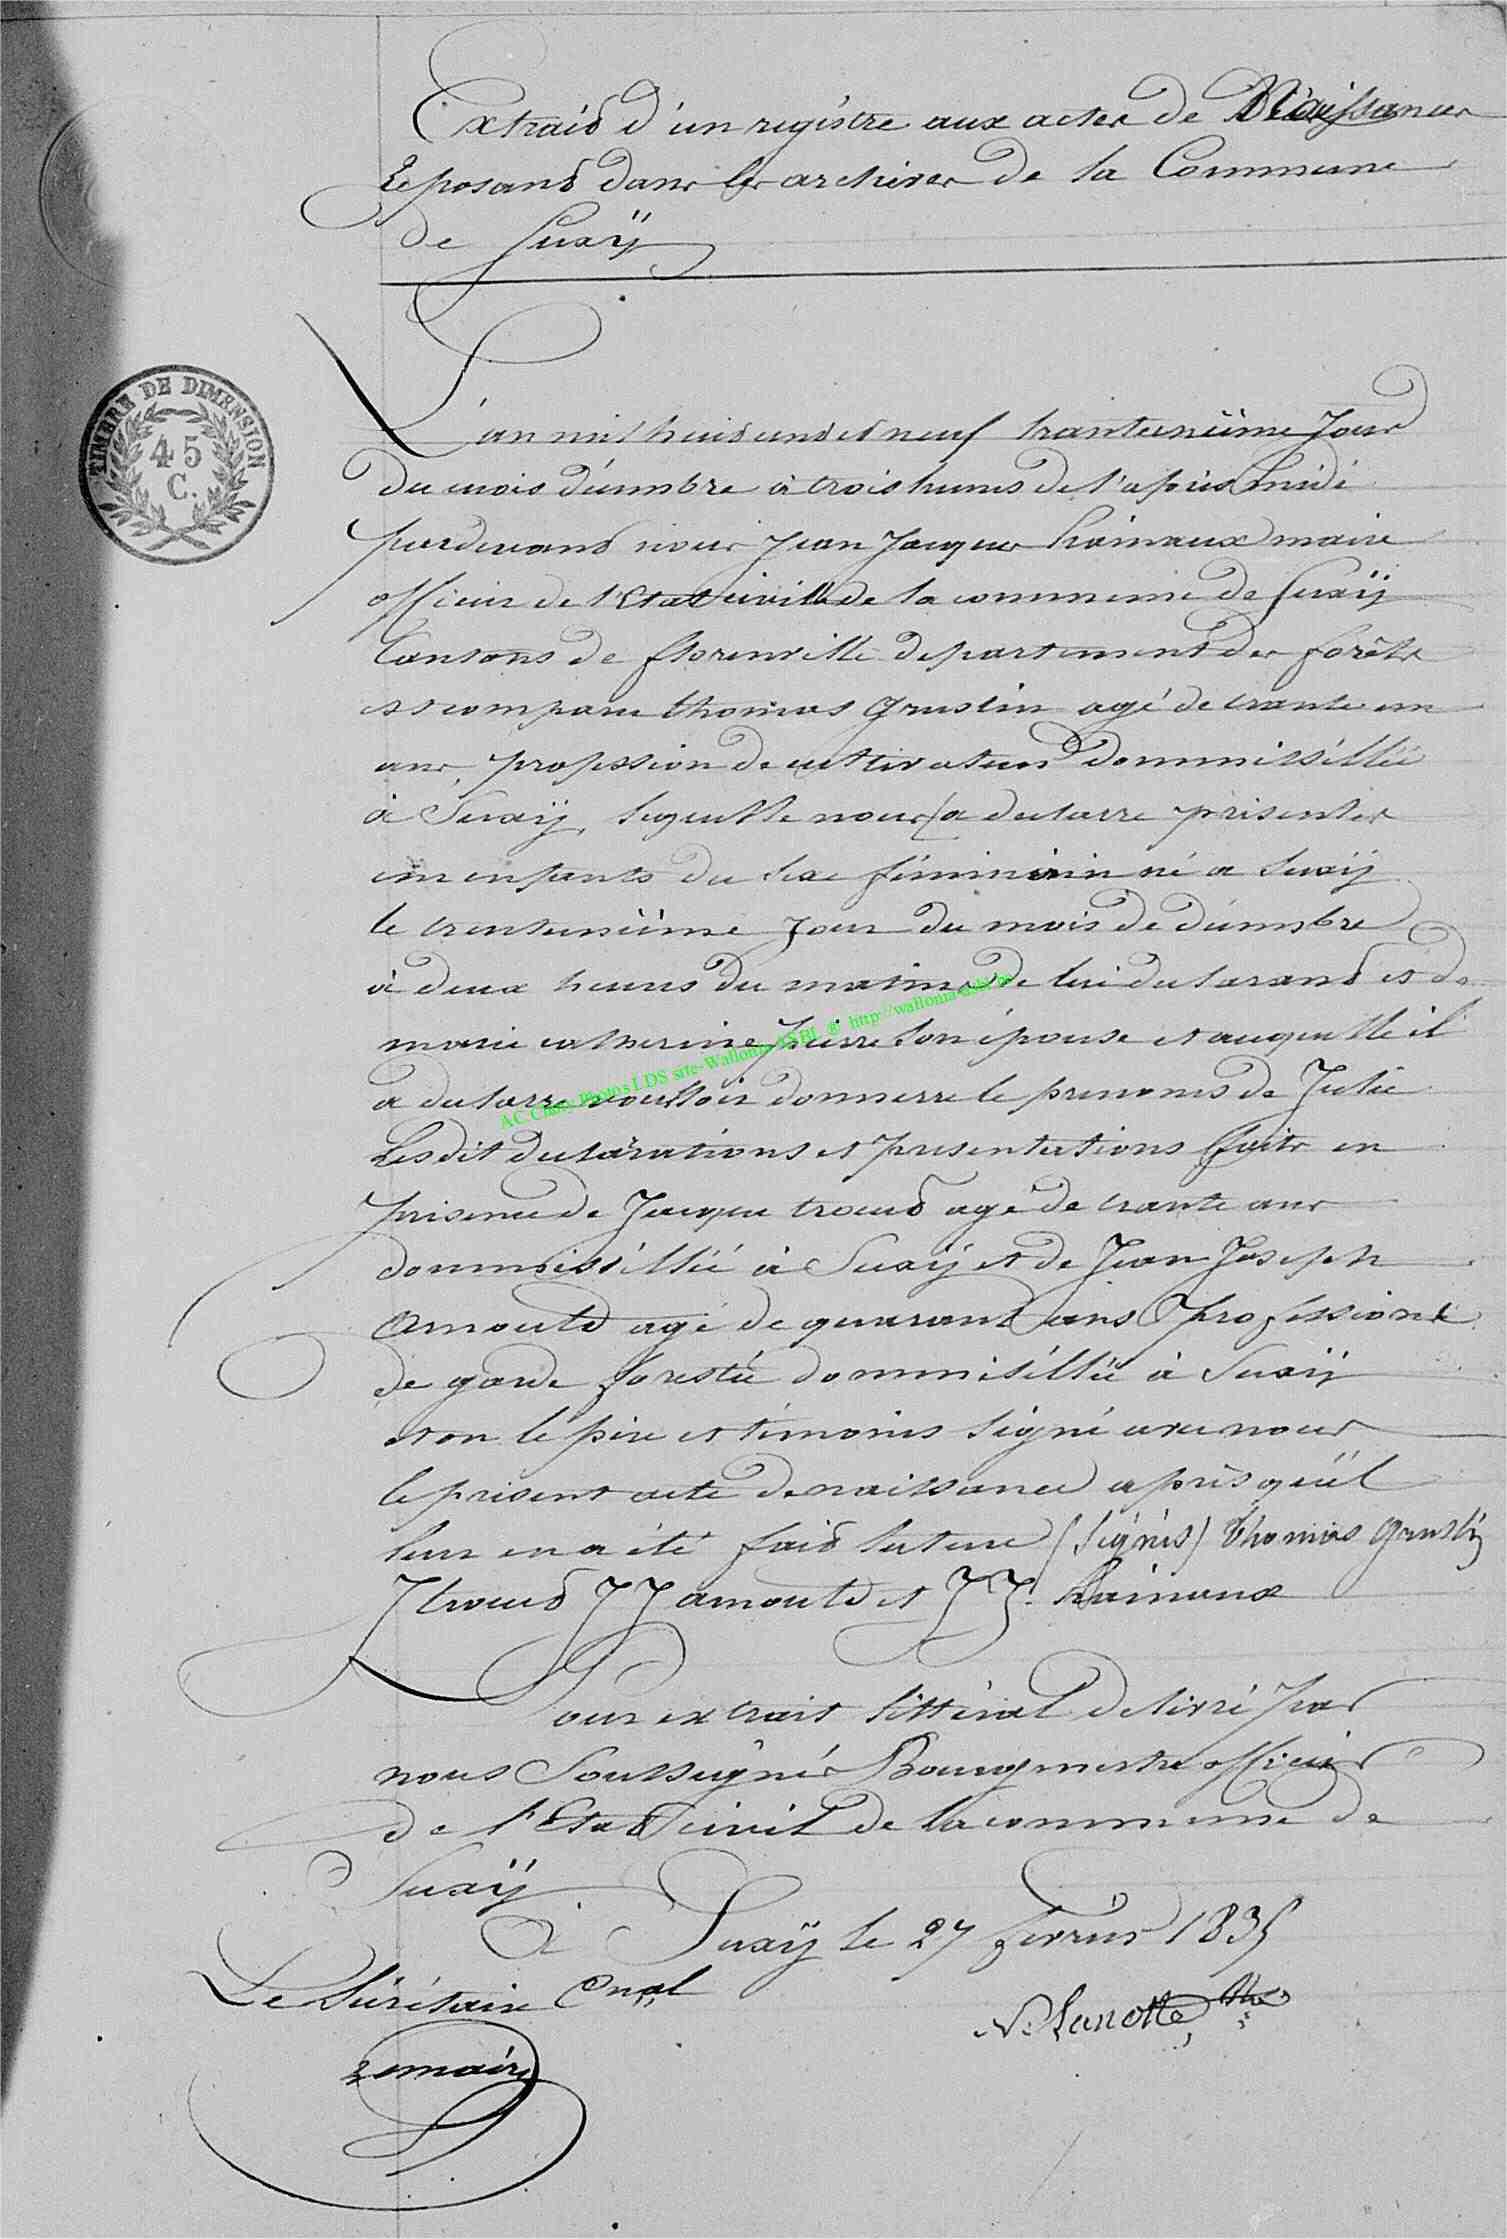 Extraid d'un registre aux actes de Naissances
Reposand dans les archives de la Commune
de Suxÿ
TIMBRE DE DIMENSION
45
C.
L'an mil huid cend et neuf tranteunïème Jour
du mois décembre à trois heures de l'après midi
pardevand nous Jean Jacques hainaux maire
officier de l'Etat civille de la commune de Suxÿ
Cantons de florenville departement des forêts
est comparu thomas Grustin agé de trante un
ans, profession de cultivateur dommissillié
à Suxÿ, lequelle nous a declarre présenter
un enfants du sexe féminin né a Suxÿ
le trenteunïème Jour du mois de décembre
à deux heures du matin de lui declarand et de
marie catherine pierre son épouse et auquelle il
a declarre voulloir donnerre le prenoms de Julie
Lesdit declarations et presentations faits en
présence de Jacque troeud agé de trante ans
dommissillié à Suxÿ et de Jean Joseph
amould agé de quarant ans profession
de garde forestié dommisillié à Suxÿ
et on le père et témoins signé avec nous
le présent acte de naissance après qu'il
leur en a été faid lecture (signés) Thomas Grustin
J troeud J J amould et J J. hainaux
Pour extrait littéral delivré par
nous Soussigné Bourgmestre officier
de l'Etat civil de la commune de
Suxÿ
A Suxÿ le 27 fevrier 1835
Le Sécrétaire Cnal
Lemaire
N. Lanotte
AC Chiny Photos LDS site-Wallonia ASBL ® http://wallonia-asbl.be